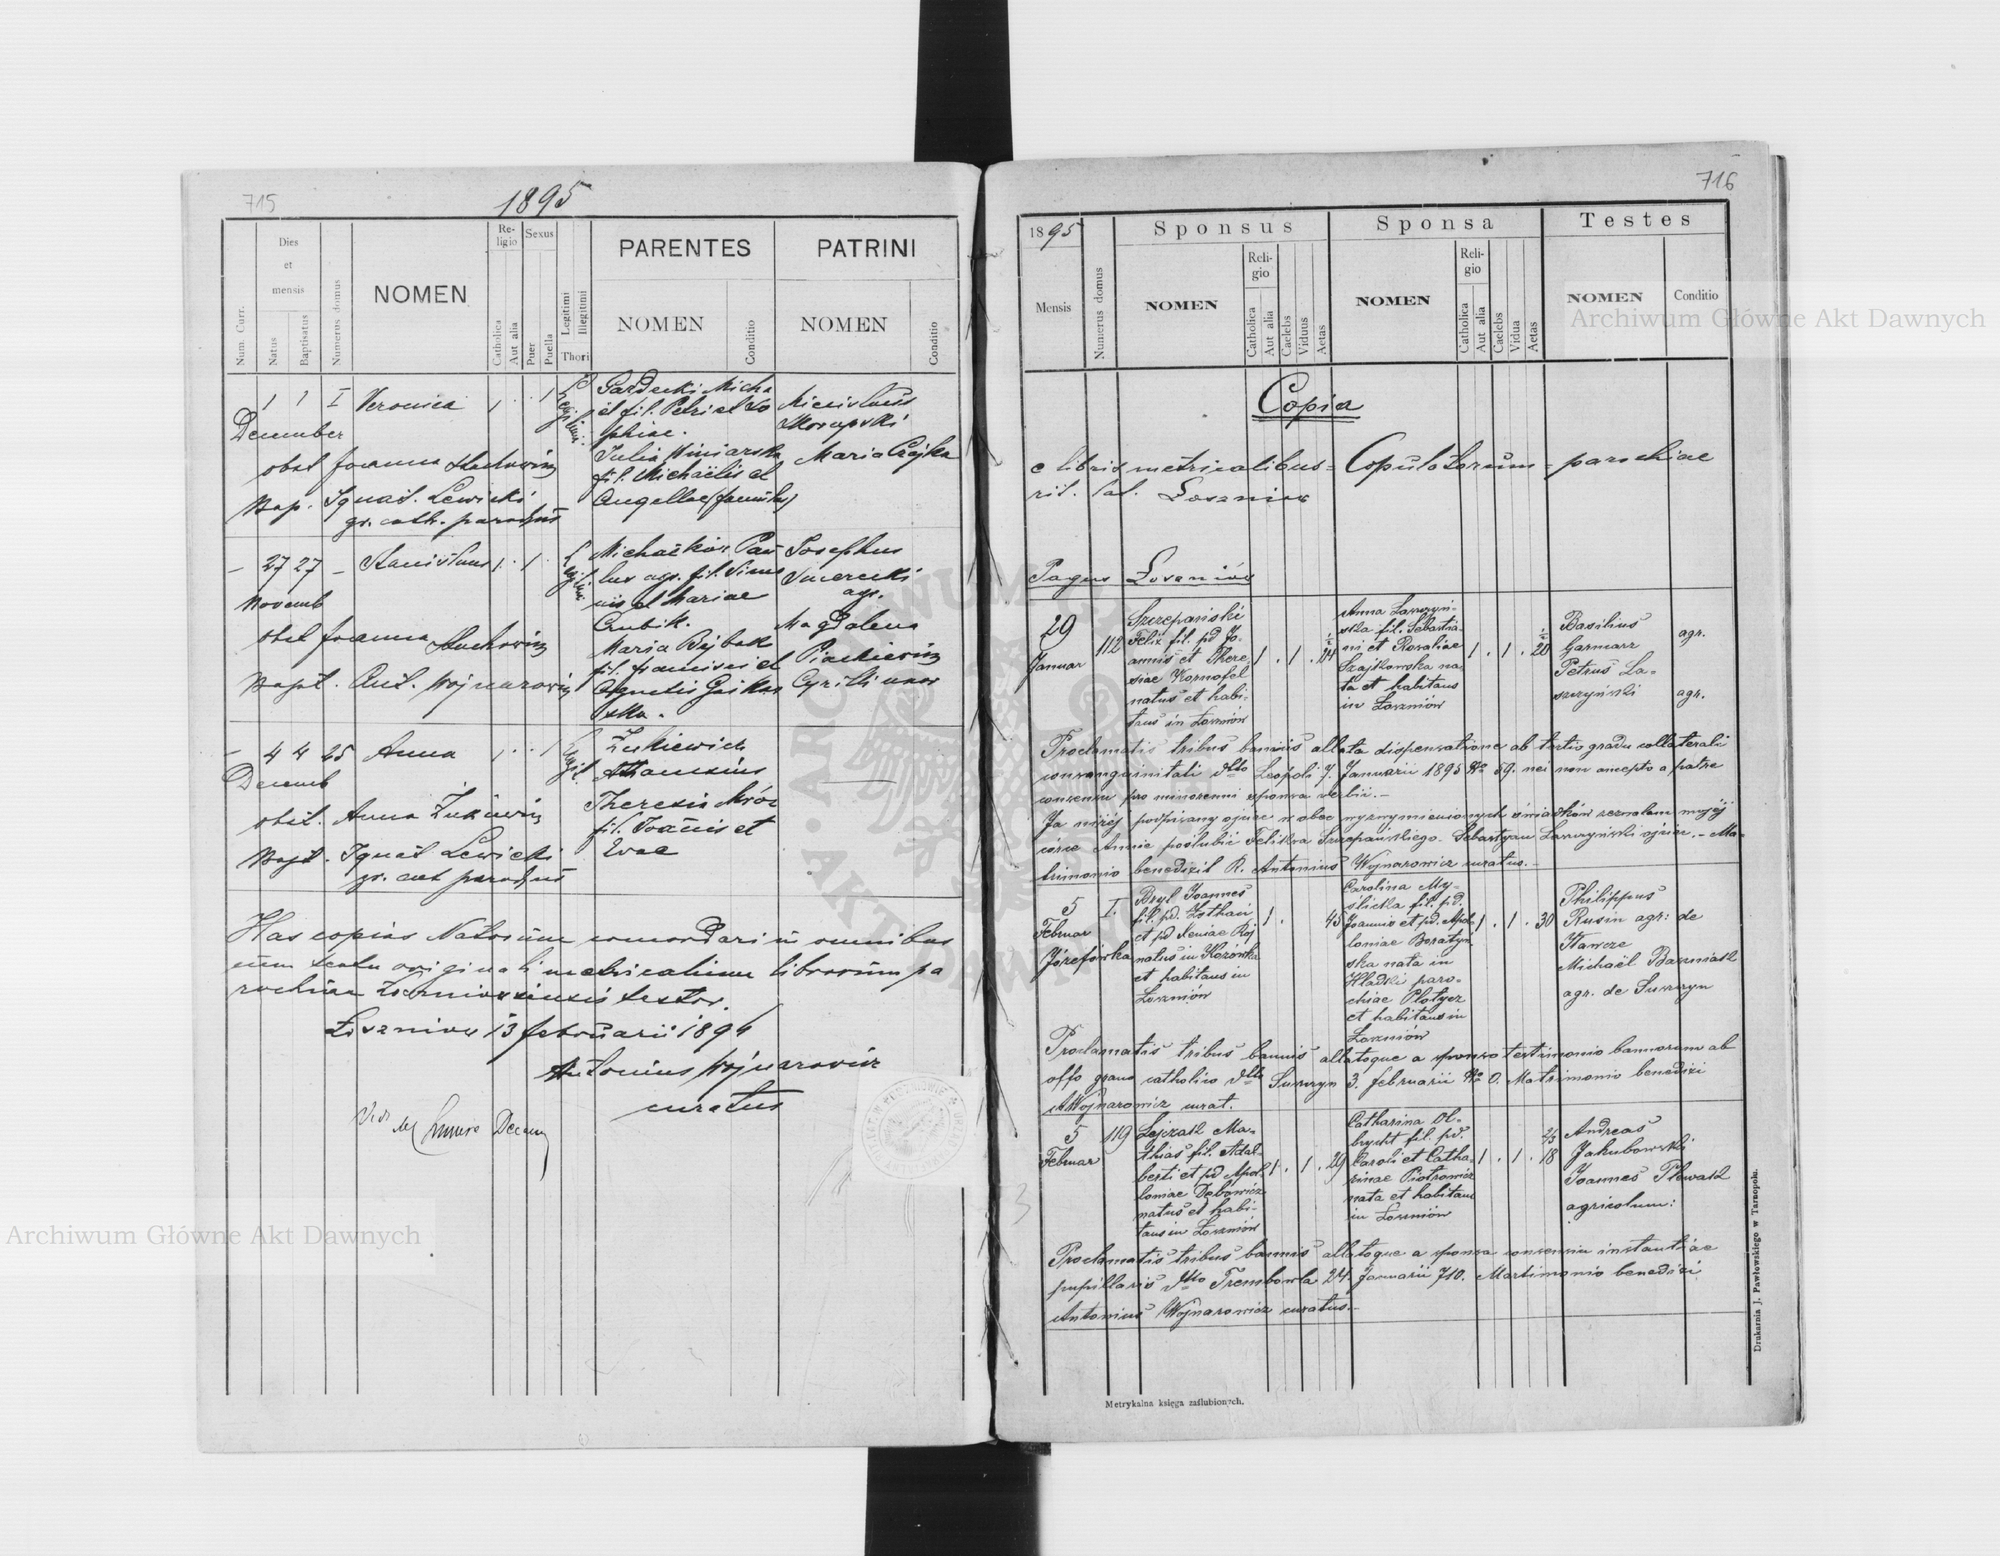 715
1895
Num. Curr.
Dies et mensis
Natus
Baptisatus
Numerus domus
NOMEN
Religio
Catholica
Aut alia
Sexus
Puer
Puella
Legitimi
Illegitimi
Thori
PARENTES
NOMEN
Conditio
PATRINI
NOMEN
Conditio
1 1 I Veronica 1 · · 1
December
obst. Joanna
Bap. Ignat. Lewicki
gr. cath. parochus
Gardecki Micha
ël fil. Petri et So
phiae.
Julia Winiarska
fil. Michaëlis et
Angellae
Miecislaus
Skorupski
Maria Czajka
– 27 27 – Stanislaus 1 · 1 ·
Novemb
obst Joanna
Bapt. Ant. Wojnarowicz
Pau
lus agr. fil. Simo
nis et Mariae
Cubik.
Maria
fil. Francisci et
Agnetis
Josephus
agr.
Magdalena
Cyrilli uxor
– 4 4 25 Anna 1 · · 1
Decemb
obst. Anna
Bapt. Ignat Lewicki
gr. cat parochus
Athanasius
Theresia Mróz
fil. Joannis et
Evae
Has copias Natorum concordari in omnibus
cum textu originali metricalium librorum pa
rochiae testor.
13 februarii 189
Antonius Wojnarowicz
curatus
716
1895
Mensis
Numerus domus
Sponsus
NOMEN
Religio
Catholica
Aut alia
Caelebs
Viduus
Aetas
Sponsa
NOMEN
Religio
Catholica
Aut alia
Caelebs
Vidua
Aetas
Testes
NOMEN
Conditio
Copia
e libris metricalibus = Copulatorum = parochiae
rit. lat. Łoszniów
Pagus Łoszniów
29
Januar
112
Szczepański
Felix fil. pd Jo-
annis et There
siae Kornafel
natus et habi-
tans in Łoszniów
1 · 1 · 24
Anna Laszczyń-
ska fil. Sebastia-
ni et Rosaliae
Szajkowska na-
ta et habitans
in Łoszniów
1 · 1 · 20
Basilius
Garmarz
agr.
Petrus La-
szczyński
agr.
Proclamatis tribus bannis allata dispensatione ab tertio gradu collaterali
consanguinitati dtto Leopoli 7. Januarii 1895 No 59. nec non accepto a patre
consensu pro minorenni sponsa verbii.–
Ja niżej podpisany ojciec w obec wyzwymienionych świadków zezwalam mojéj
córce Annie poślubić Feliksa Szczepańskiego. Sebastyan Laszczyński ojciec. – Ma-
trimonio benedixit R. Antonius Wojnarowicz curatus.–
5
Februar
Józefówka
I.
Bryl Joannes
et pd Xeniae Rój
natus in Kozówka
et habitans in
Łoszniów
1 · 45
Carolina My-
ślicka fil. pd.
Joannis et pd. Apol-
loniae Boratyń-
ska nata in
Hladki paro-
chiae Płotycz
et habitans in
Łoszniów
1 · 1 · 30
Philippus
Rusin agr: de
Iławcze
Michaël Baszniak
agr. de Suszczyn
Proclamatis tribus bannis allatoque a sponso testimonio bannorum ab
offo graeco catholico dtto Suszczyn 3. februarii No 0. Matrimonio benedixi
AWojnarowicz curat.
5
Februar
119
Lejzak Ma-
thias fil. Adal-
berti et pd Apol-
loniae Dębowicz
natus et habi-
tans in Łoszniów
1 · 1 · 29
Catharina Ol-
brycht fil. pd.
Caroli et Catha-
rinae Piotrowicz
nata et habitans
in Łoszniów
1 · 1 · 18
Andreas
Jakubowski
Joannes Plewak
agricolum:
Proclamatis tribus bannis allatoque a sponsa consensu instantiae
pupillaris dtto Trembowla 24. Januarii 710. Martimonio benedixi
Antonius Wojnarowicz curatus.–
Metrykalna księga zaślubionych.
Drukarnia J. Pawłowskiego w Tarnopolu.
Archiwum Główne Akt Dawnych
Archiwum Główne Akt Dawnych